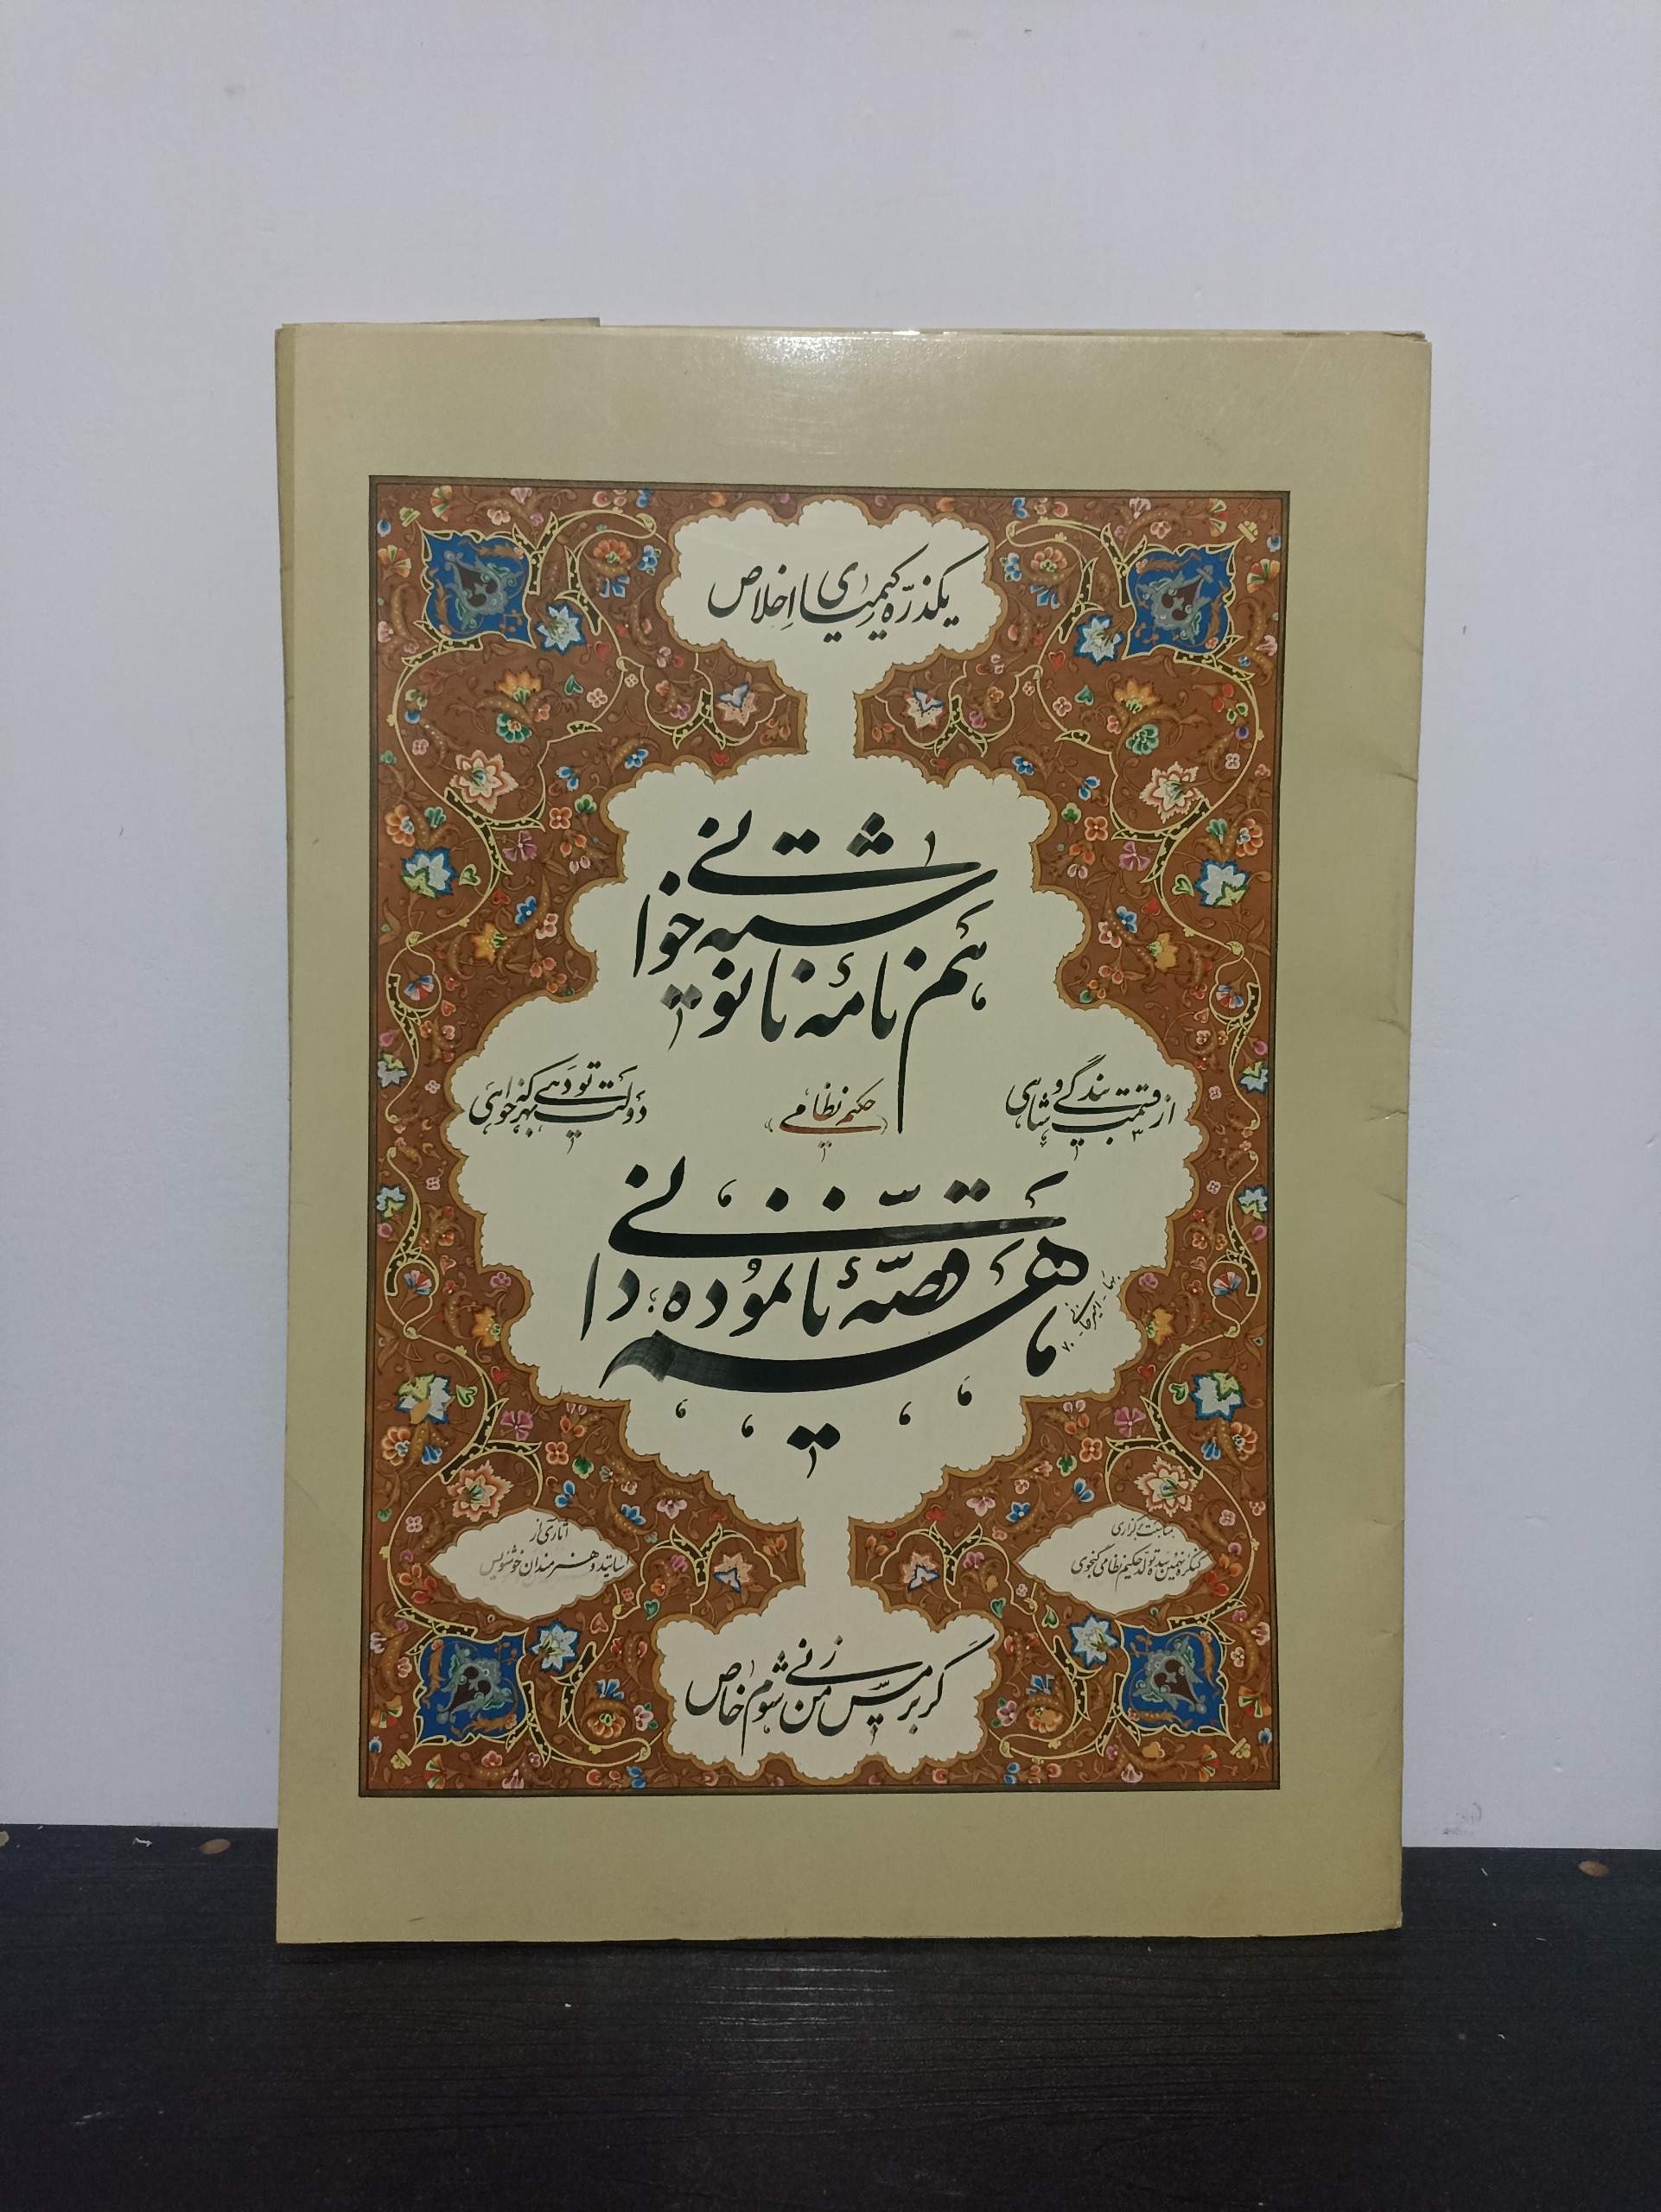 یکذره کیمیای اخلاص
هم نامهٔ نانوشته خوانی
از قسمت بندگی و شاهی
حکیم نظامی
دولت تو دهی بهر که خواهی
هم قصهٔ نانموده دانی
امیرخانی ۷۰
بمناسبت برگزاری
کنگره نهمین سده تولد حکیم نظامی گنجوی
آثاری از
اساتید و هنرمندان خوشنویس
گر بر مس من زنی شوم خاص